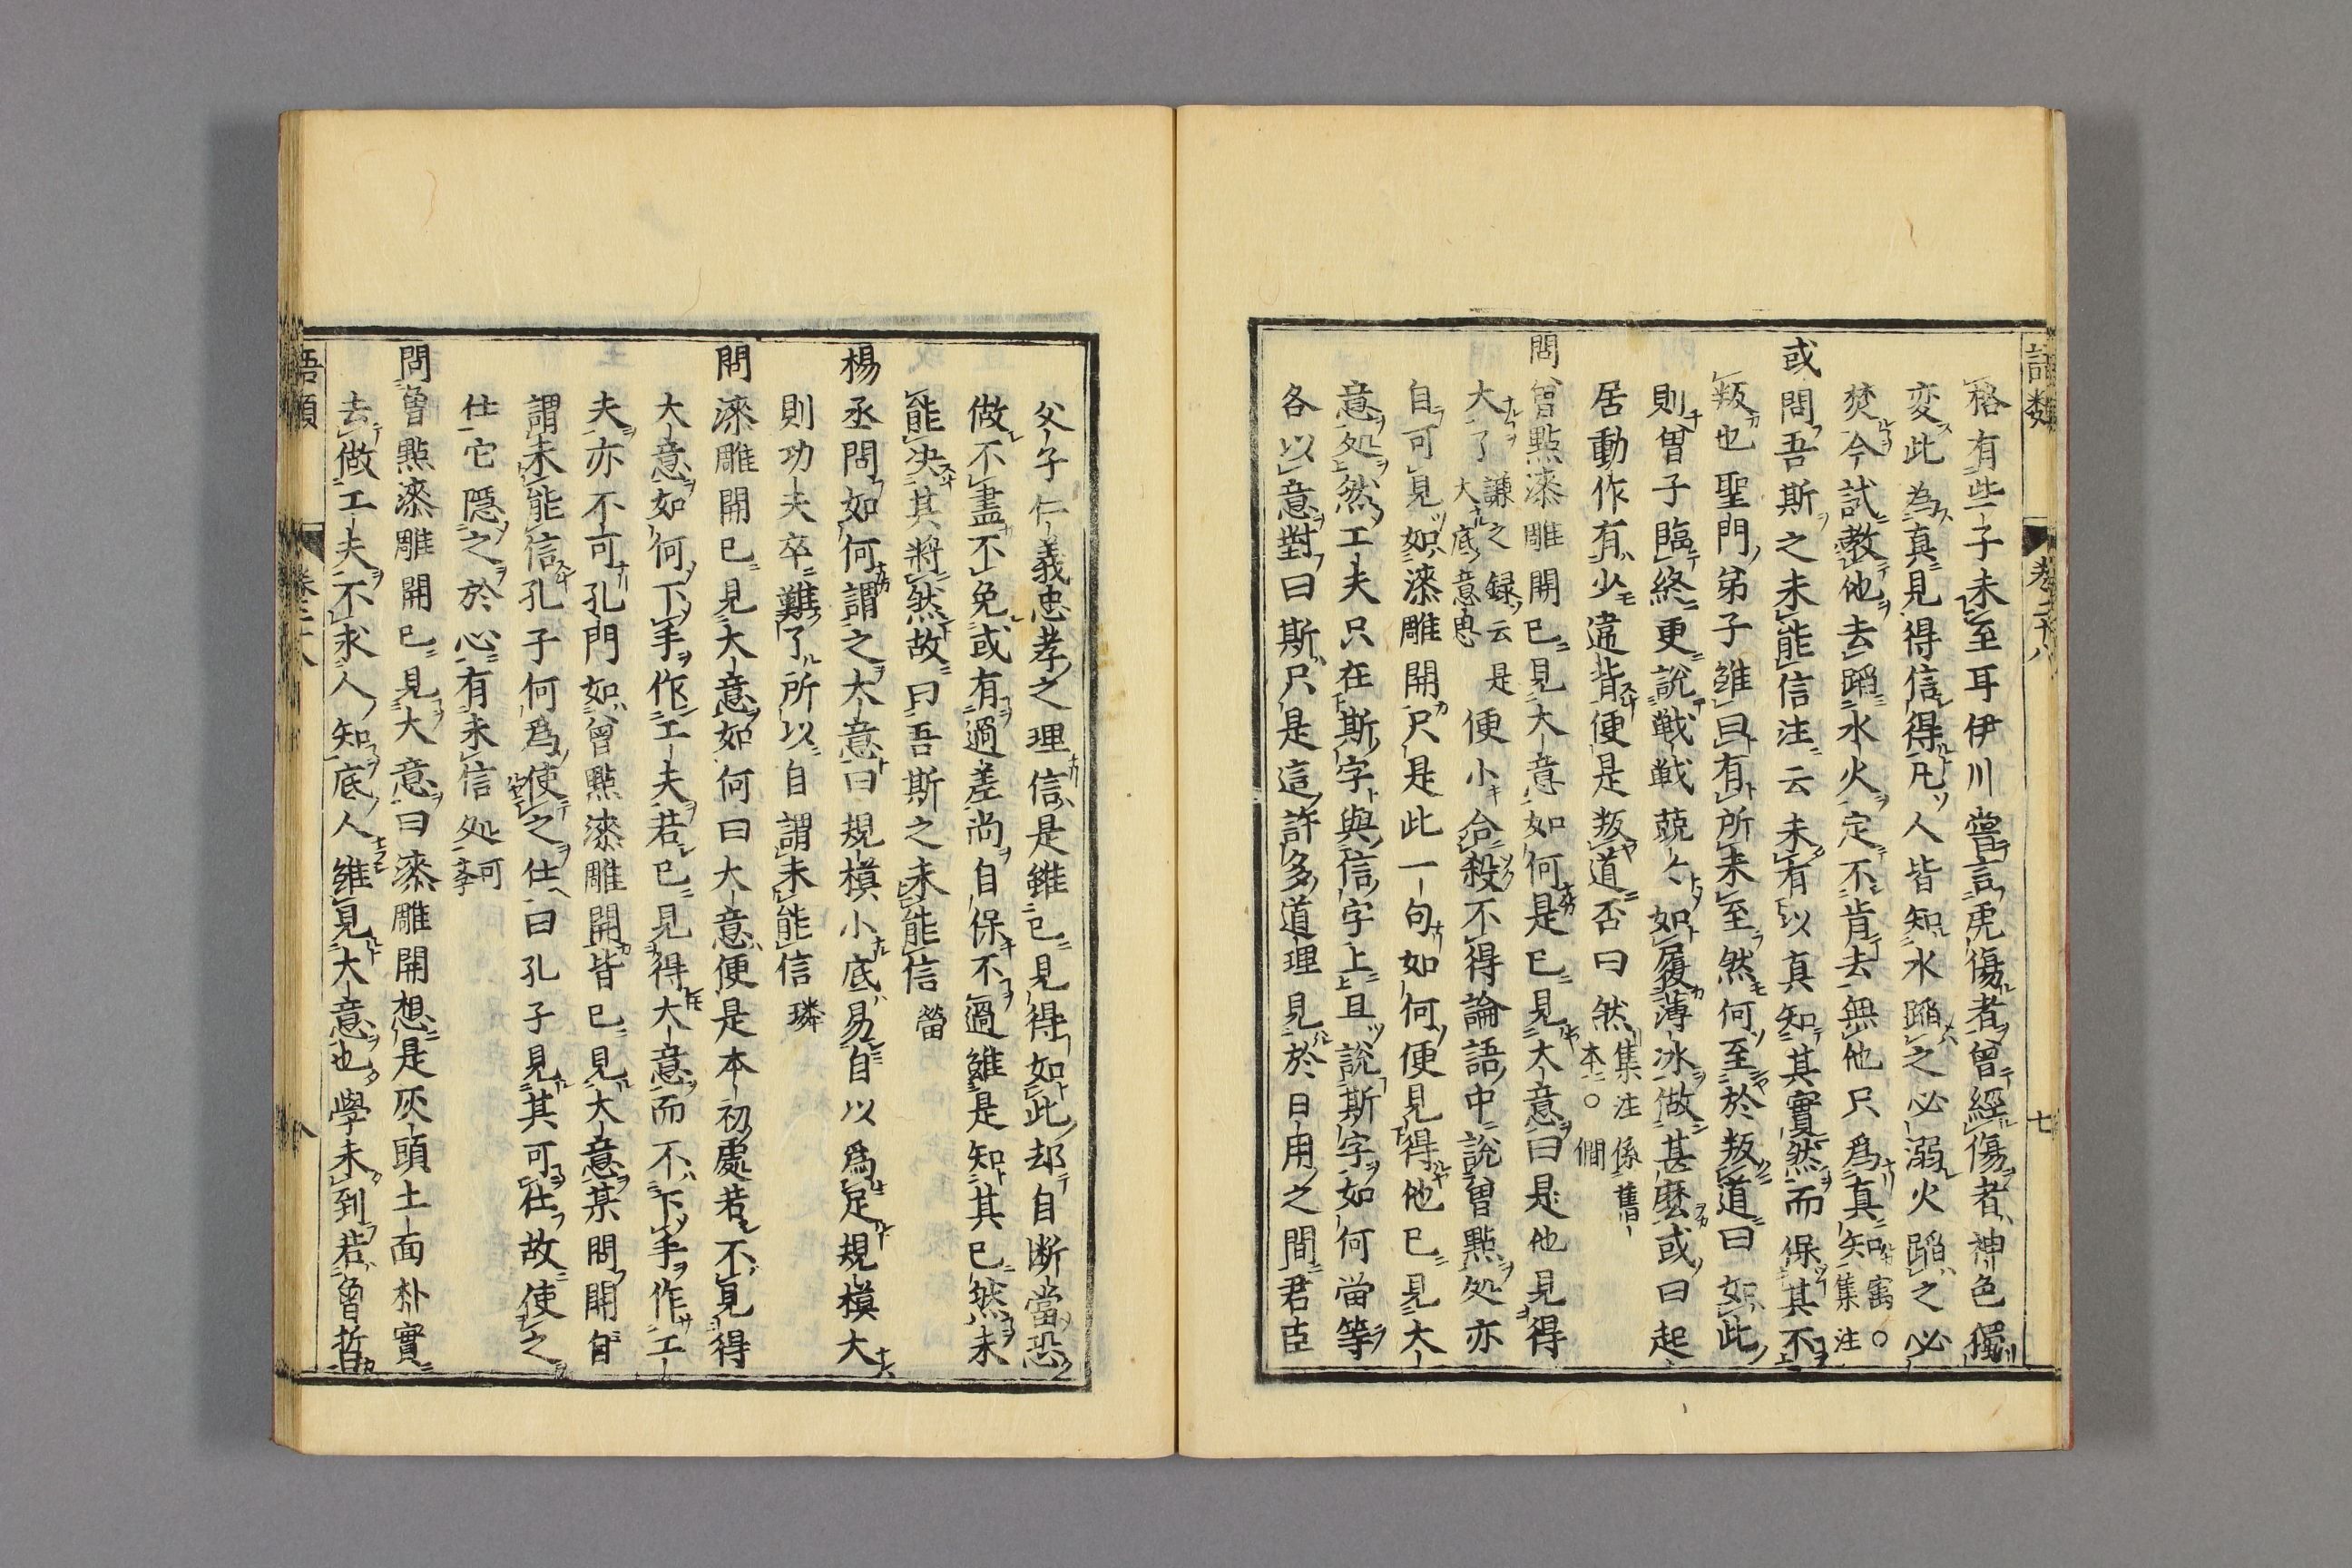 語類 卷二十八 七
格有些子未至耳伊川嘗言虎傷者曾經傷者神色獨
変此為真見得信得凡人皆知水蹈之必溺火蹈之必
焚今試教他去蹈水火定不肯去無他只為真知㝢○集注
或問吾斯之未能信注云未有以真知其實然而保其不
叛也聖門弟子雖曰有所未至然何至於叛道曰如此
則曾子臨終更說戦戦兢〻如履薄冰做甚麼或曰起
居動作有少違背便是叛道否曰然集注係舊本○僩
問曾點漆雕開已見大意如何是已見大意曰是他見得
大了謙之録云是大底意思便小合殺不得論語中說曽點処亦
自可見如漆雕開只是此一句如何便見得他已見大
意処然工夫只在斯字與信字上且說斯字如何當等
各以意對曰斯只是這許多道理見於日用之間君臣
父子仁義忠孝之理信是雖已見得如此却自断當恐
做不盡不免或有過差尚自保不過雖是知其已然未
能決其將然故曰吾斯之未能信 㽦
楊丞問如何謂之大意曰規模小底易自以為足規模大
則功夫卒難了所以自謂未能信 璘
問漆雕開已見大意如何曰大意便是本初處若不見得
大意如何下手作工夫若已見得大意而不下手作工
夫亦不可孔門如曾點漆雕開皆已見大意某問開自
謂未能信孔子何為使之仕曰孔子見其可仕故使之
仕它隱之於心有未信処 可學
問曾點漆雕開已見大意曰漆雕開想是灰頭土面朴實
去做工夫不求人知底人雖見大意也學未到若曾晳
語類 卷二十八